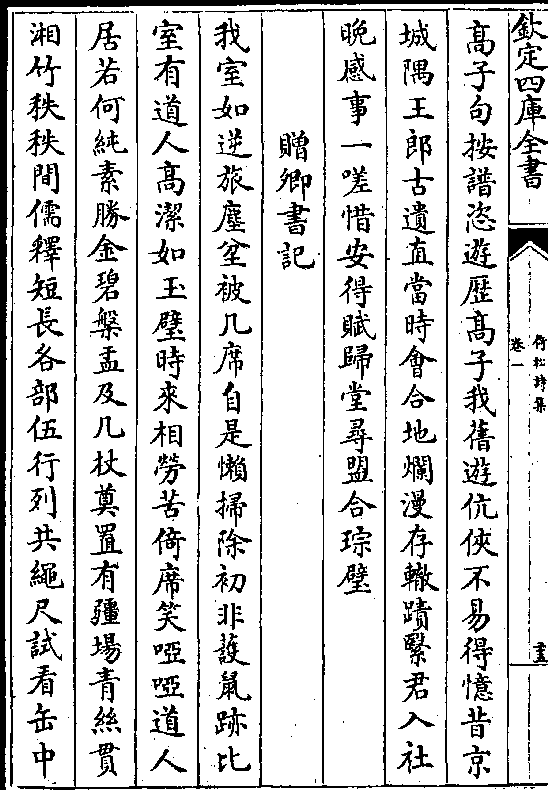 欽定四庫全書
倚松詩集
卷一
高子句按譜恣遊歴高子我舊遊伉俠不易得憶昔京
城隅王郎古遺直當時會合地爛漫存轍蹟緊君入社
晩感事一嗟惜安得賦歸堂尋盟合琮璧
贈卿書記
我室如逆旅塵坌被几席自是懶掃除初非䕶鼠跡比
室有道人高潔如玉璧時來相勞苦倚席笑啞啞道人
居若何純素勝金碧槃盂及几杖奠置有疆場青絲貫
湘竹秩秩間儒釋短長各部伍行列共繩尺試看缶中